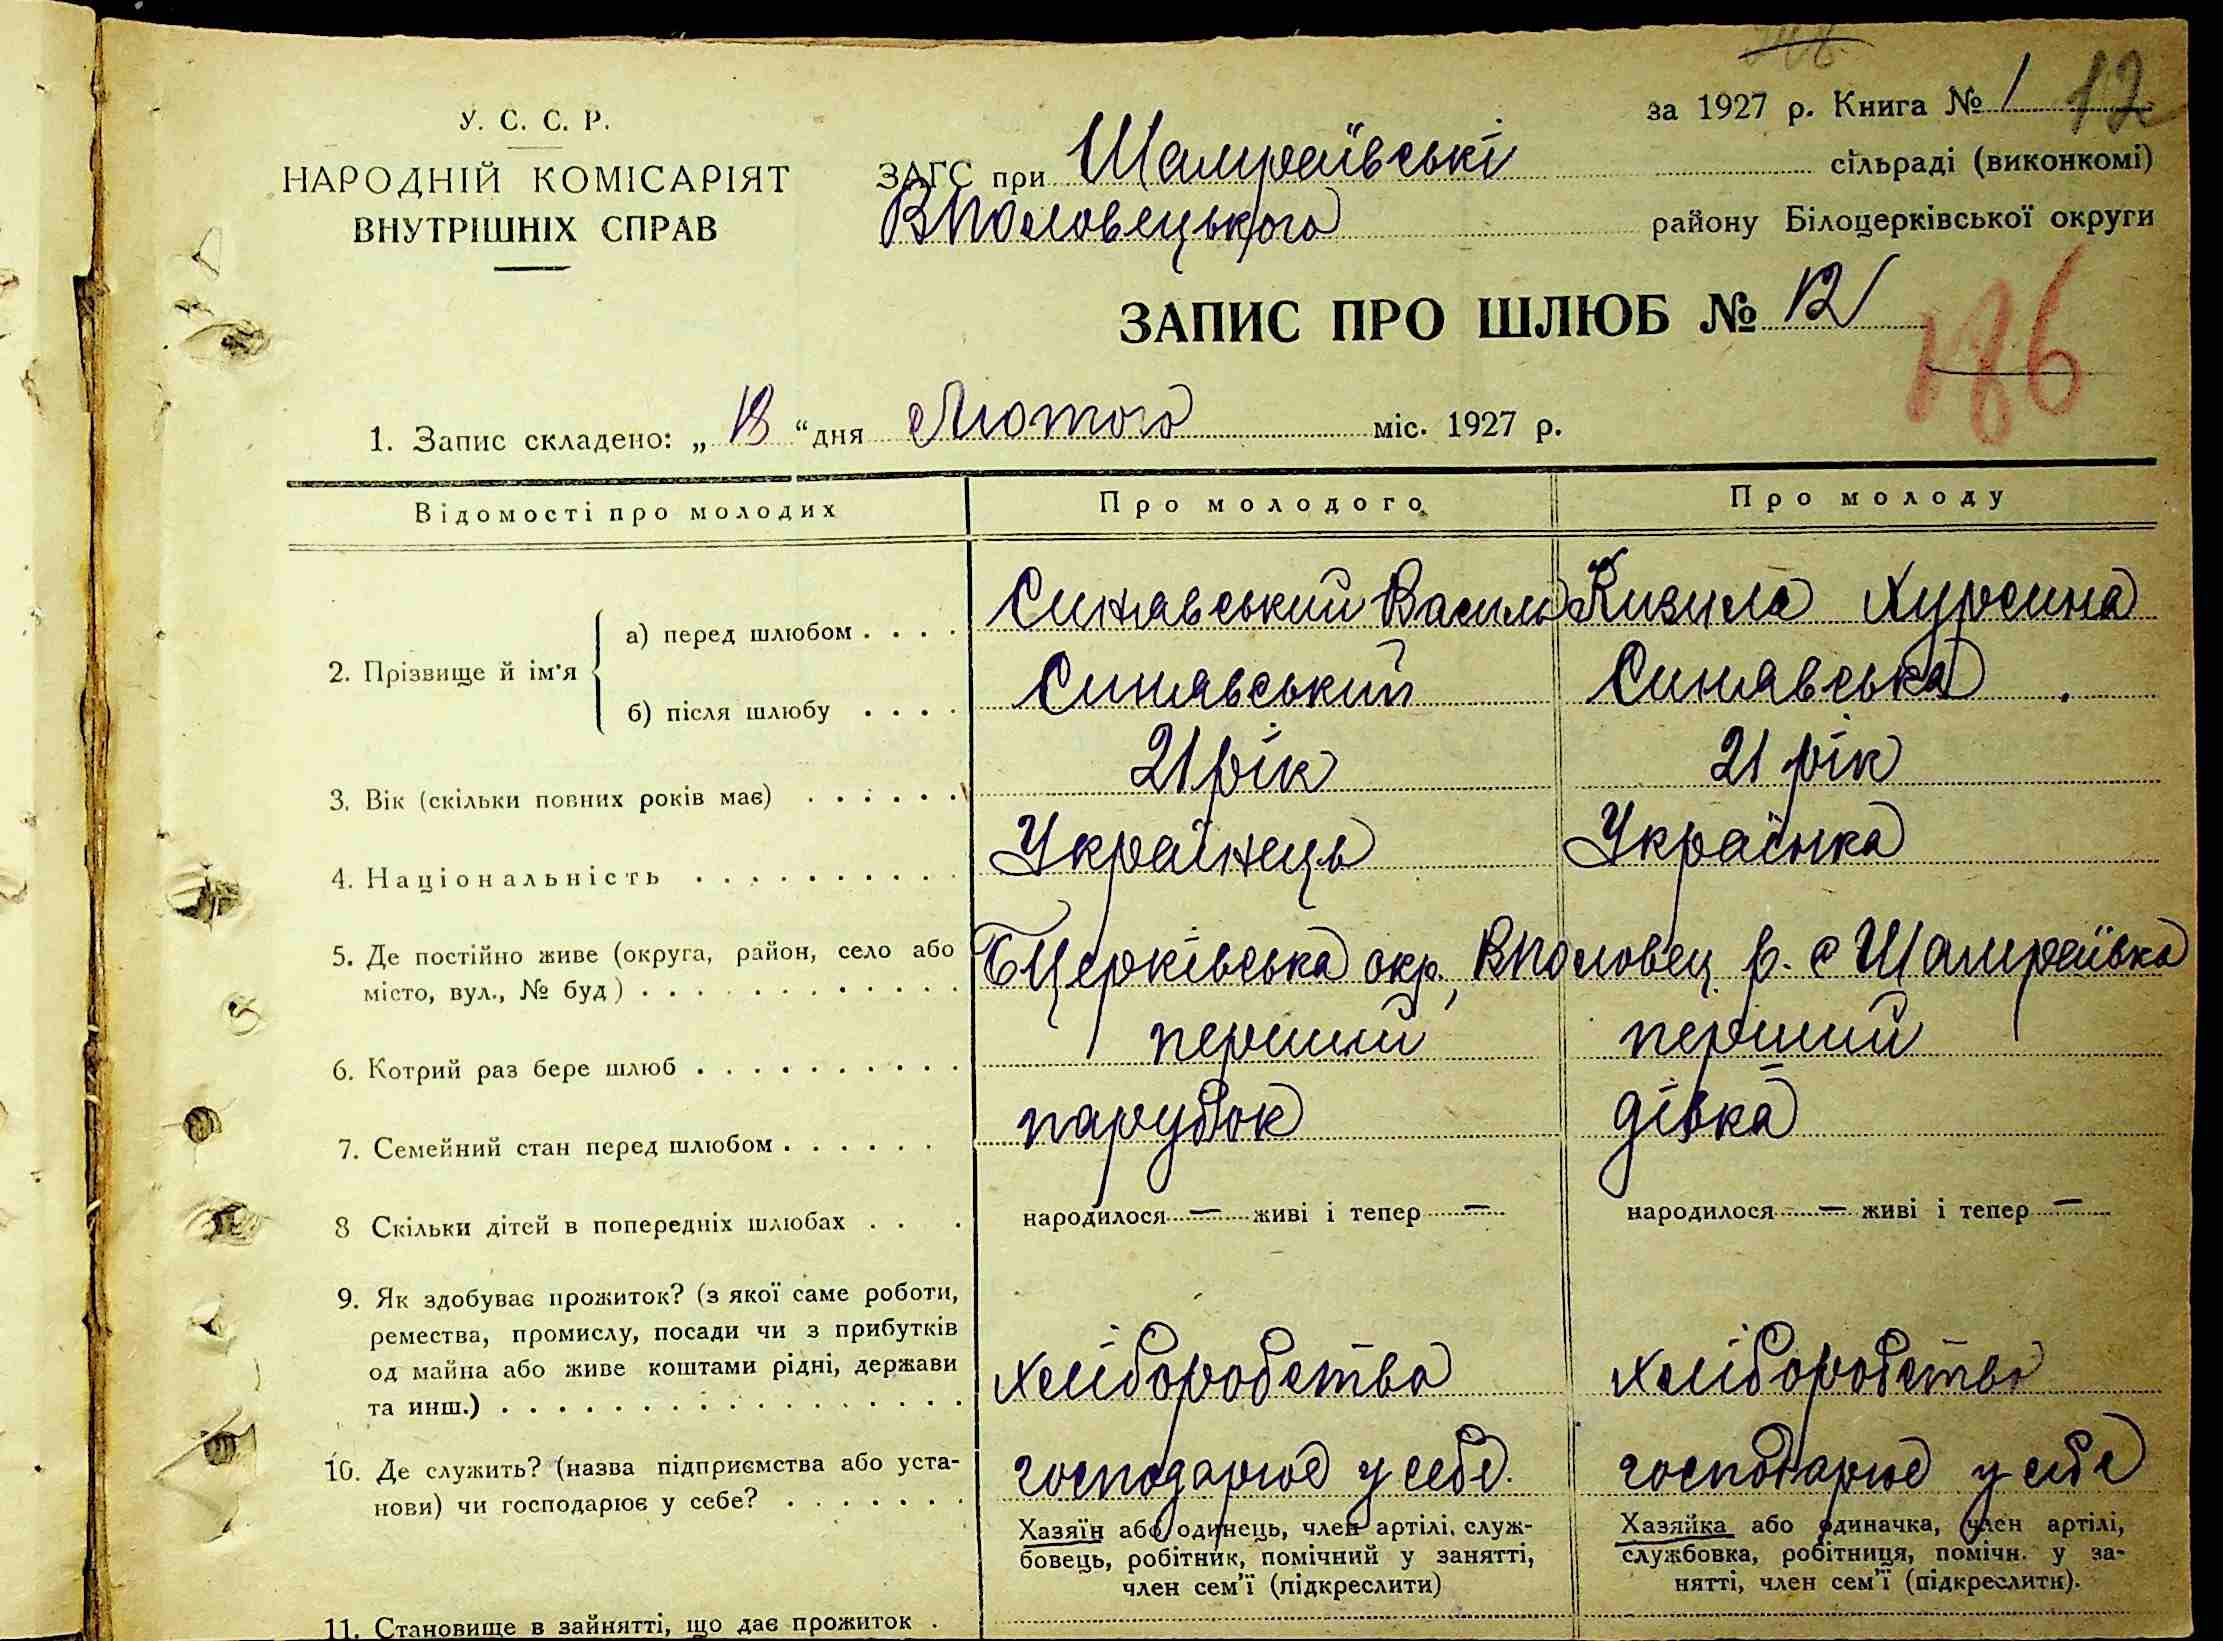 за 1927 р. Книга № 1 12
У. С. С. Р.
НАРОДНІЙ КОМІСАРІЯТ
ВНУТРІШНІХ СПРАВ
ЗАГС при Шамраївські сільраді (виконкомі)
ВПоловецького району Білоцерківської округи
ЗАПИС ПРО ШЛЮБ № 12
186
1. Запис складено: „ 18 “ дня Лютого міс. 1927 р.
Відомості про молодих Про молодого Про молоду
2. Прізвище й ім'я
а) перед шлюбом . . . . Синявський Василь Кизила Хурсина
б) після шлюбу . . . . Синявський Синявська
3. Вік (скільки повних років має) . . . . . . 21 рік 21 рік
4. Національність . . . . . . . . . . Українець Українка
5. Де постійно живе (округа, район, село або
місто, вул., № буд) . . . . . . . . . . . БЦерківська окр., ВПоловец. р. с Шамраївка
6. Котрий раз бере шлюб . . . . . . . . . . перший перший
7. Семейний стан перед шлюбом . . . . . . парубок дівка
8 Скільки дітей в попередніх шлюбах . . . народилося — живі і тепер — народилося — живі і тепер —
9. Як здобуває прожиток? (з якої саме роботи,
ремества, промислу, посади чи з прибутків
од майна або живе коштами рідні, держави
та инш.) . . . . . . . . . . . . . . . . . хліборобства хліборобство
10. Де служить? (назва підприємства або уста-
нови) чи господарює у себе? . . . . . . . господарює у себе. господарює у себе
Хазяїн або одинець, член артілі, служ-
бовець, робітник, помічний у занятті,
член сем'ї (підкреслити)
Хазяйка або одиначка, член артілі,
службовка, робітниця, помічн. у за-
нятті, член сем'ї (підкреслити).
11. Становище в зайнятті, що дає прожиток .